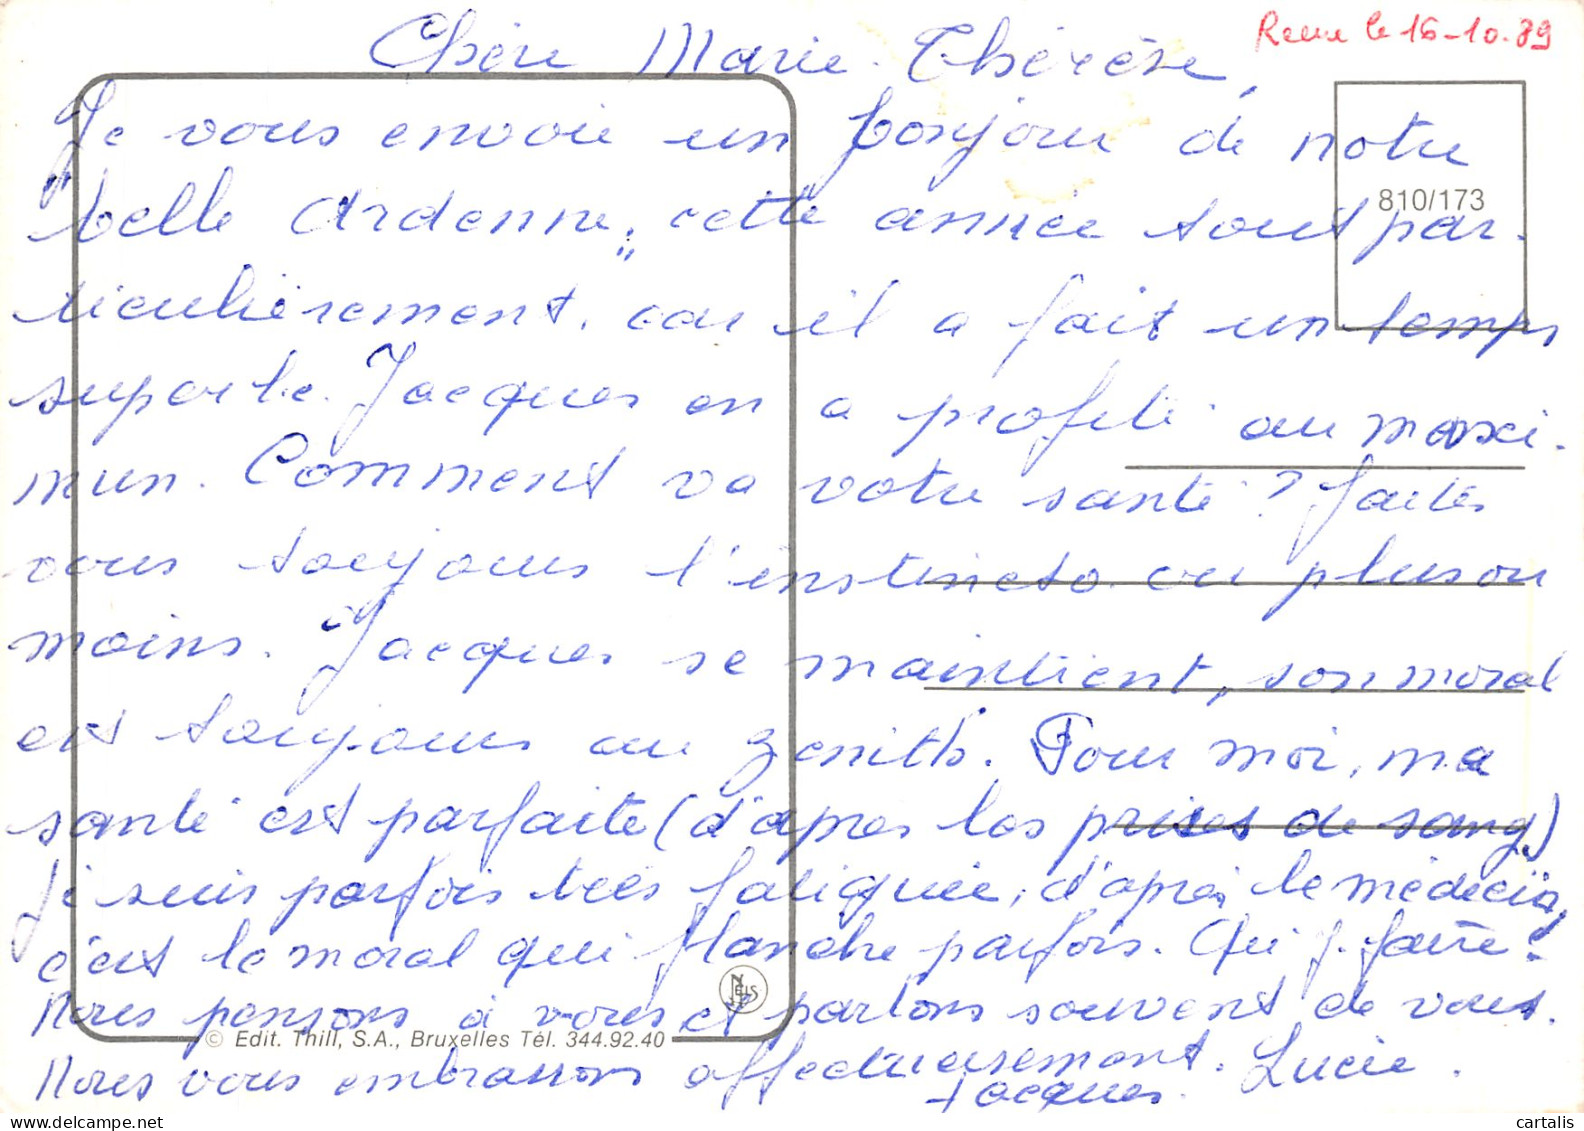 Reçue le 16-10.89
Chère Marie-Thérèse,
Je vous envoie un bonjour de notre
810/173
"belle Ardenne", cette année tout par-
ticulièrement, car il a fait un temps
superbe. Jacques en a profité au maxi-
mun. Comment va votre santé ? Faites
vous toujours l'instincto. ou plus ou
moins. Jacques se maintient, son moral
est toujours au zenith. Pour moi, ma
santé est parfaite (d'après les prises de sang)
Je suis parfois très fatiguée, d'après le médecin,
c'est le moral qui flanche parfois. Qu'y faire.
NELS
Nous pensons à vous et parlons souvent de vous.
© Edit. Thill, S.A., Bruxelles Tél. 344.92.40
Nous vous embrassons affectueusement. Lucie.
+ Jacques.
cartalis